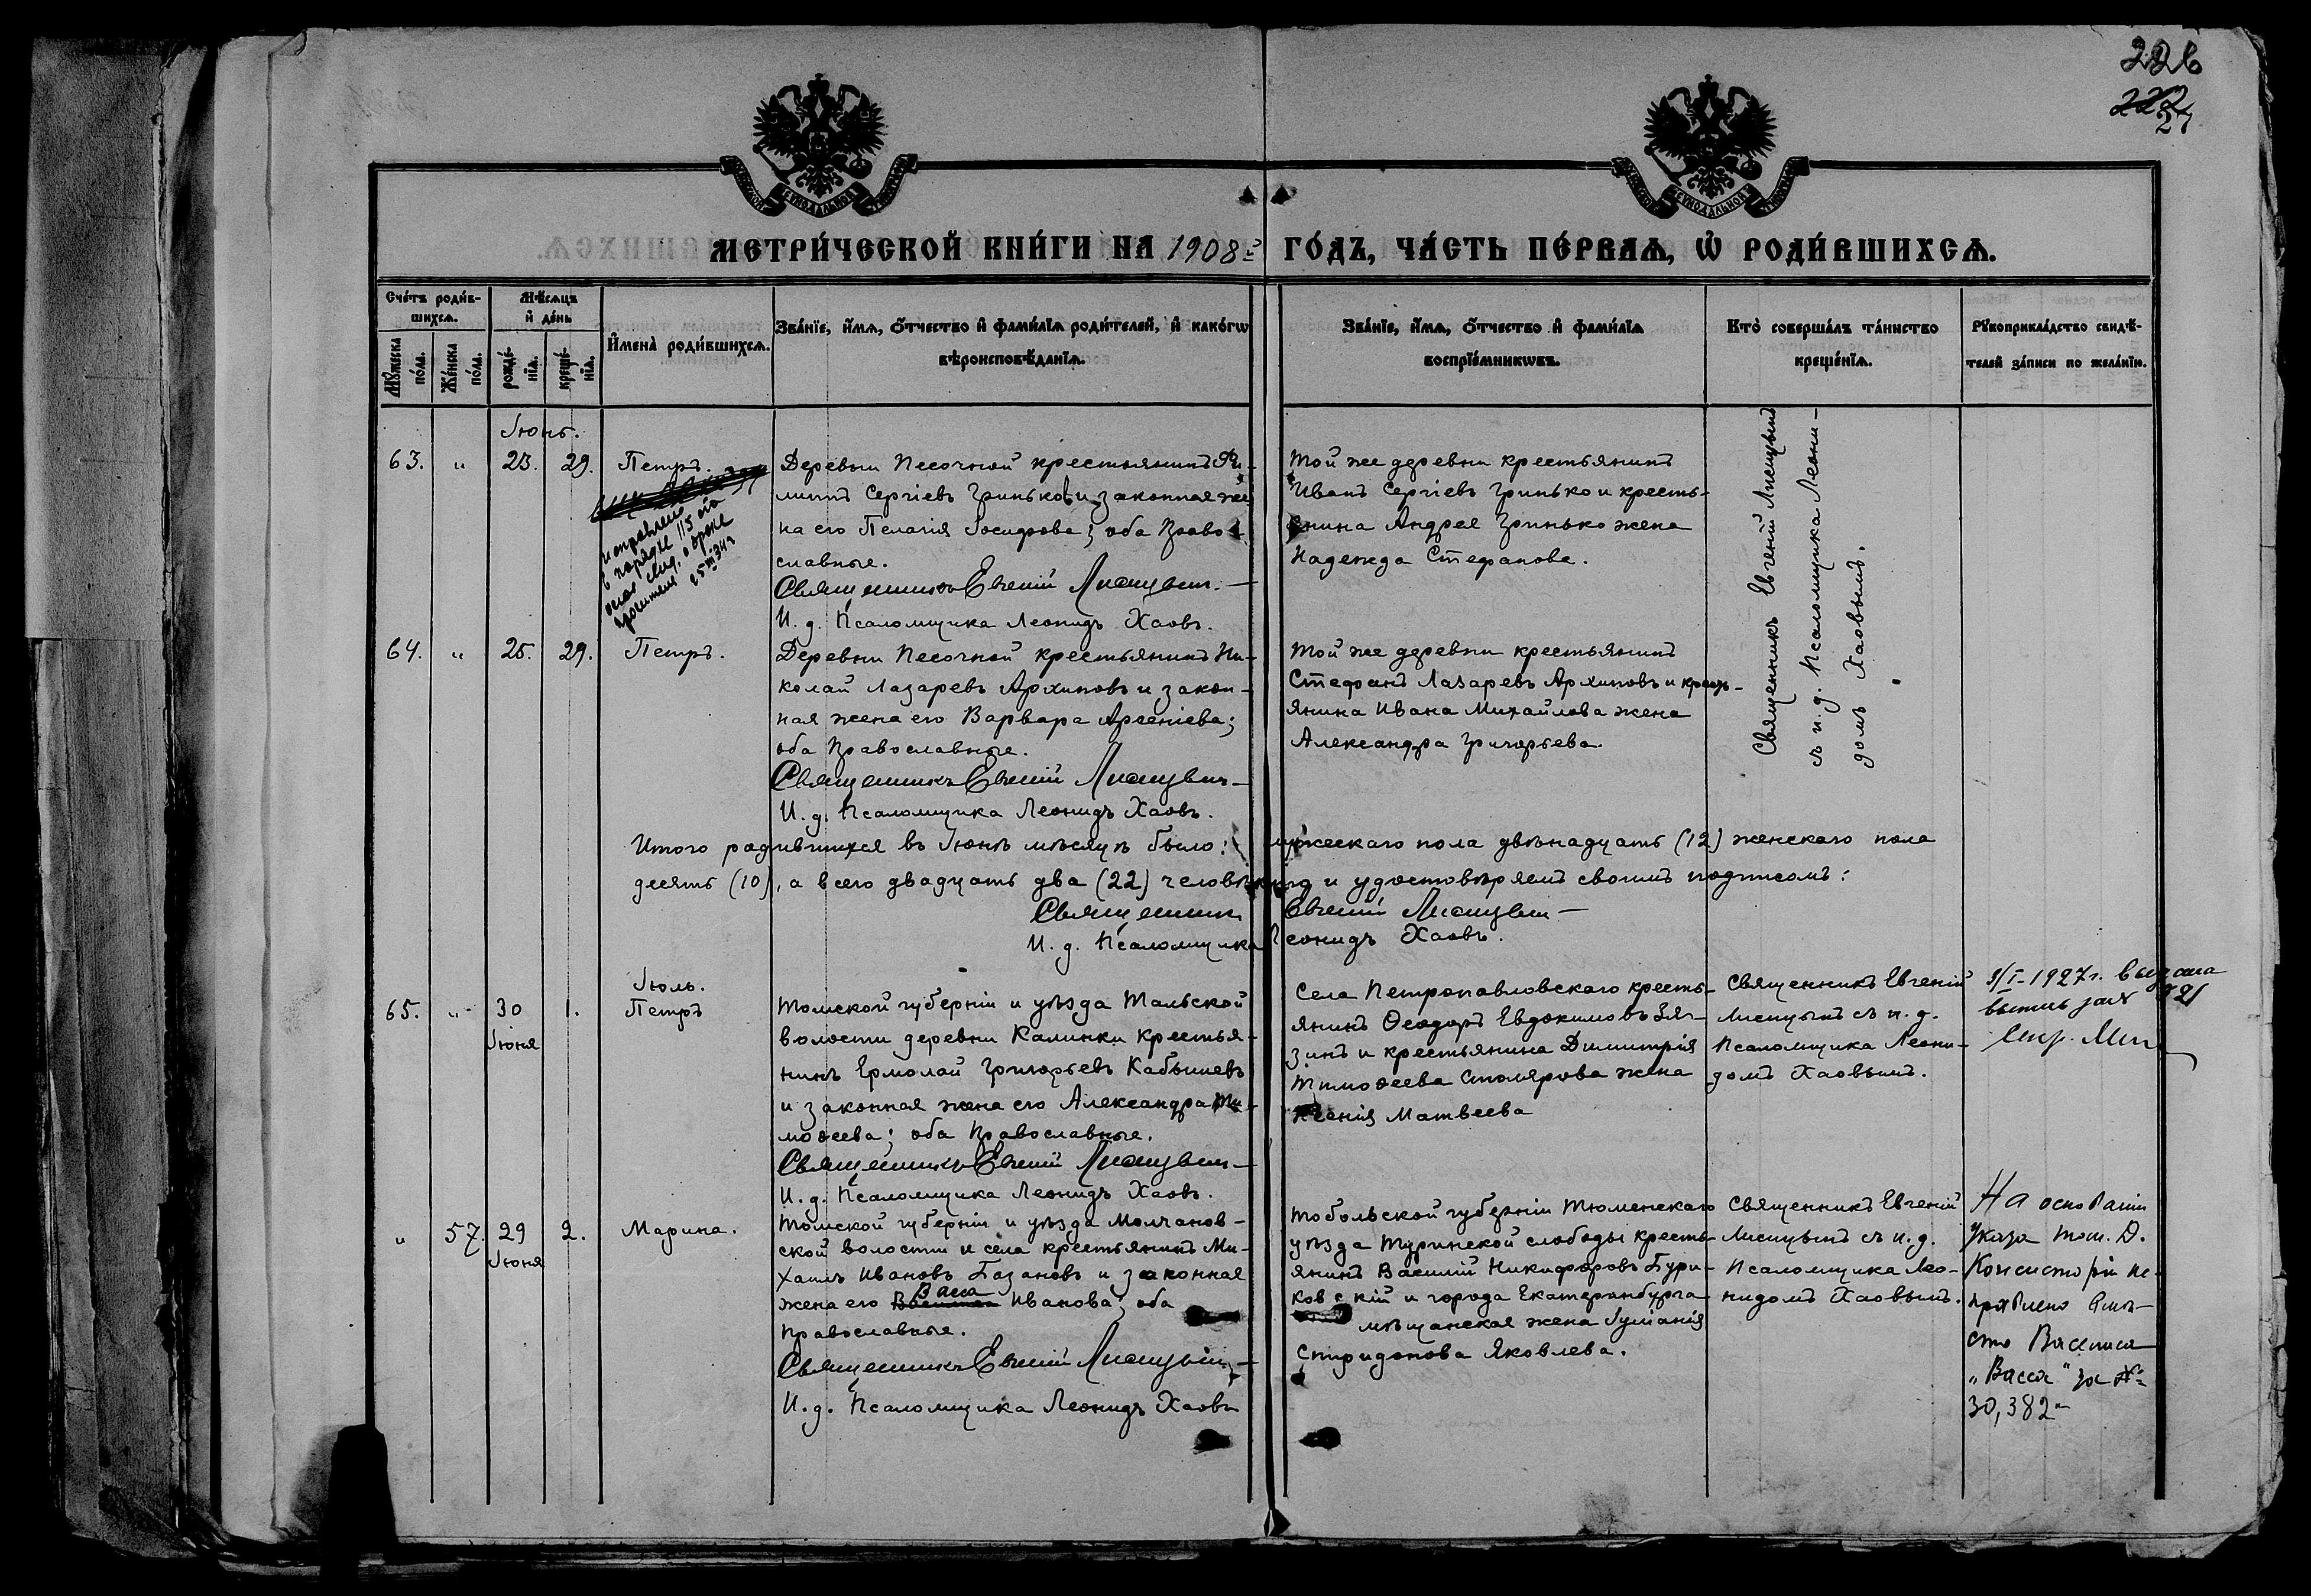 226
222
27
МЕТРИ́ЧЕСКОЙ КНИ́ГИ НА 1908й ГО́ДЪ, ЧА́СТЬ ПЕ́РВАѦ, Ѡ҆ РОДИ́ВШИХСѦ.
Сче́тъ роди́в-
шихсѧ.
Мѣ́сѧцъ
и҆ де́нь
Мꙋ́жеска
по́ла.
Же́нска
по́ла.
рожде́-
нїѧ.
креще́-
нїѧ.
И҆мена̀ роди́вшихсѧ.
Зва́нїе, и҆́мѧ, ѻ҆́тчество и҆ фами́лїѧ роди́телей, и҆ како́гѡ
вѣроисповѣ́данїѧ.
Зва́нїе, и҆́мѧ, ѻ҆́тчество и҆ фами́лїѧ
воспрїе́мникѡвъ.
Кто̀ соверша́лъ та́инство
креще́нїѧ.
Рꙋкоприкла́дство свидѣ́-
телей за́писи по жела́нїю.
Іюнь.
63. " 23. 29. Петръ.
Деревни Песочной крестьянинъ Фи-
липпъ Сергіевъ Гринько и законная же-
на его Пелагія Іосифова; оба Право-
славные.
Священникъ Евгеній Лисицынъ.
И. д. Псаломщика Леонидъ Хаовъ.
исправлено
в порядке 115
о браке
Той же деревни крестьянинъ
Иванъ Сергіевъ Гринько и кресть-
янина Андрея Гринько жена
Надежда Стефанова.
Священникъ Евгеній Лисицынъ
съ и. д. Псаломщика Леони-
домъ Хаовымъ.
64. " 25. 29. Петръ.
Деревни Песочной крестьянинъ Ни-
колай Лазаревъ Архиповъ и закон-
ная жена его Варвара Арсеніева;
оба Православные.
Священникъ Евгеній Лисицынъ
И. д. Псаломщика Леонидъ Хаовъ.
Той же деревни крестьянинъ
Стефанъ Лазаревъ Архиповъ и кресть-
янина Ивана Михайлова жена
Александра Григорьева.
Итого родившихся въ Іюнѣ мѣсяцѣ было: мужескаго пола двѣнадцать (12) женскаго пола
десять (10), а всего двадцать два (22) человѣка и удостовѣряемъ своимъ подписомъ:
Священникъ Евгеній Лисицынъ
И. д. Псаломщика Леонидъ Хаовъ.
Іюль.
65. " 30 Іюня 1. Петръ
Томской губерніи и уѣзда Тальской
волости деревни Калинки крестья-
нинъ Ермолай Григорьевъ Кабышевъ
и законная жена его Александра Ти-
моѳеева; оба Православные.
Священникъ Евгеній Лисицынъ
И. д. Псаломщика Леонидъ Хаовъ.
Села Петропавловскаго кресть-
янинъ Ѳеодоръ Евдокимовъ Зя-
зинъ и крестьянина Димитрія
Тимоѳеева Столярова жена
Ксенія Матвеева
Священникъ Евгеній
Лисицынъ съ и. д.
Псаломщика Леони-
домъ Хаовымъ.
9/I-1927 г. выдана
21
" 57. 29 Іюня 2. Марина.
Томской губерніи и уѣзда Молчанов-
ской волости и села крестьянинъ Ми-
хаилъ Ивановъ Базановъ и законная
Васса
жена его Василиса Иванова; оба
Православные.
Священникъ Евгеній Лисицынъ
И. д. Псаломщика Леонидъ Хаовъ
Тобольской губерніи Тюменскаго
уѣзда Туринской слободы кресть-
янинъ Василій Никифоровъ Бури-
ковскій и города Екатеринбурга
мѣщанская жена Іуліанія
Спиридонова Яковлева.
Священникъ Евгеній
Лисицынъ съ и. д.
Псаломщика Лео-
нидомъ Хаовымъ.
На основаніи
Указа Том. Д.
Консисторіи ис-
правлено вмѣ-
сто Василиса
„Васса" за №
30,382